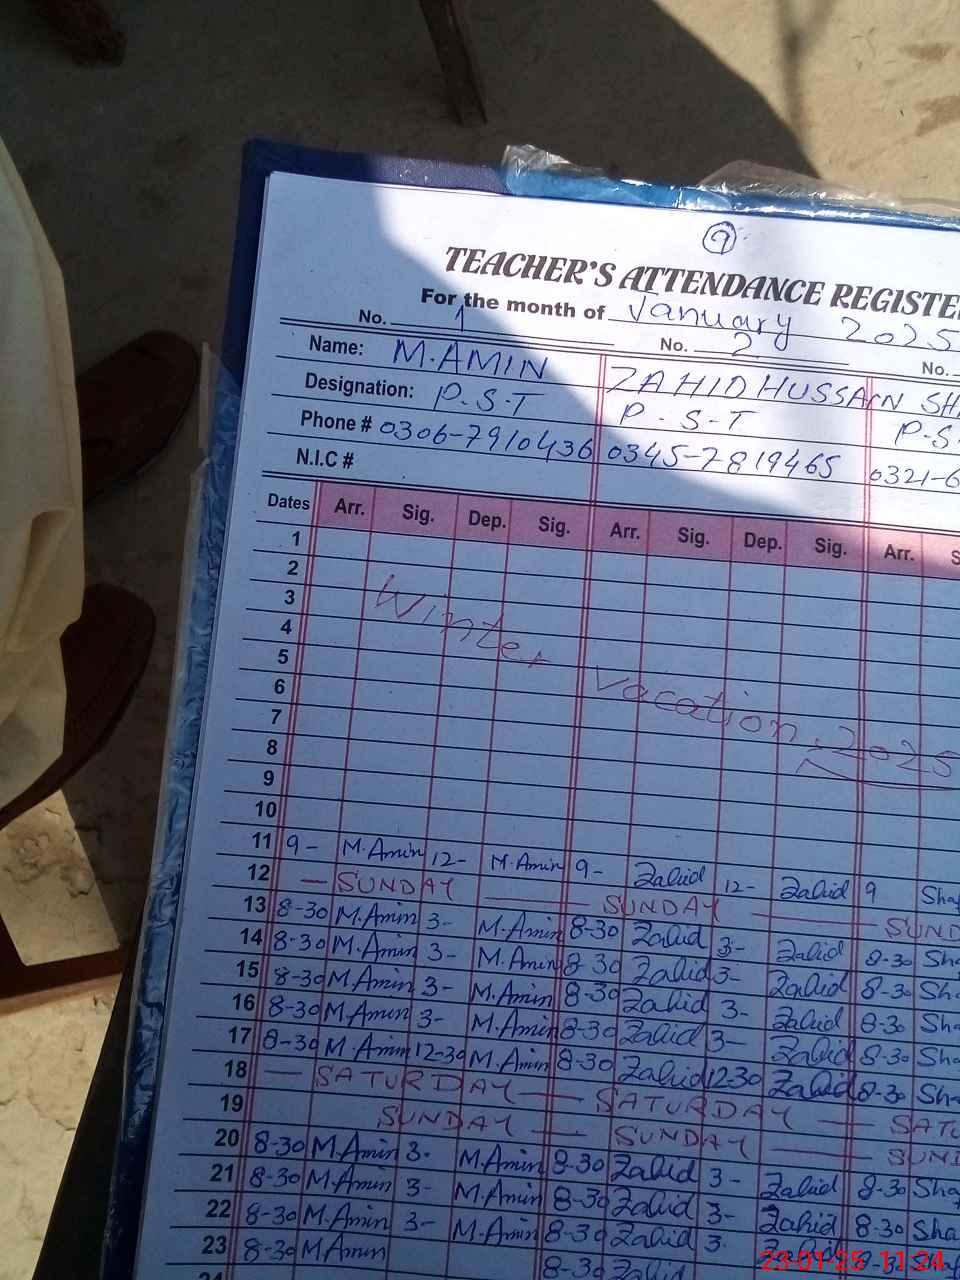 9
TEACHER'S ATTENDANCE REGISTE
For the month of January 2025
No. 1 No. 2 No.
Name: M.AMIN ZAHID HUSSAIN SH
Designation: P.S.T P.S-T P.S
Phone # 0306-7910436 0345-7819465 0321-6
N.I.C #
Dates Arr. Sig. Dep. Sig. Arr. Sig. Dep. Sig. Arr. S
1
2
3
4
5
6
7
8
9
10
Winter Vacation. 2025
11 9- M.Amin 12- M.Amin 9- Zahid 12- Zahid 9 Sha
12 — SUNDAY — SUNDAY — SUND
13 8-30 M.Amin 3- M.Amin 8-30 Zahid 3- Zahid 8-30 Sha
14 8-30 M.Amin 3- M.Amin 8-30 Zahid 3- Zahid 8-30 Sha
15 8-30 M.Amin 3- M.Amin 8-30 Zahid 3- Zahid 8-30 Sha
16 8-30 M.Amin 3- M.Amin 8-30 Zahid 3- Zahid 8-30 Sha
17 8-30 M.Amin 12-30 M.Amin 8-30 Zahid 12-30 Zahid 8-30 Sha
18 — SATURDAY — SATURDAY — SATU
19 SUNDAY — SUNDAY — SUND
20 8-30 M.Amin 3- M.Amin 8-30 Zahid 3- Zahid 8-30 Sha
21 8-30 M.Amin 3- M.Amin 8-30 Zahid 3- Zahid 8-30 Sha
22 8-30 M.Amin 3- M.Amin 8-30 Zahid 3- Zahid 8-30
23 8-30 M.Amin 8-30 Zahid
23-01-25 11:24